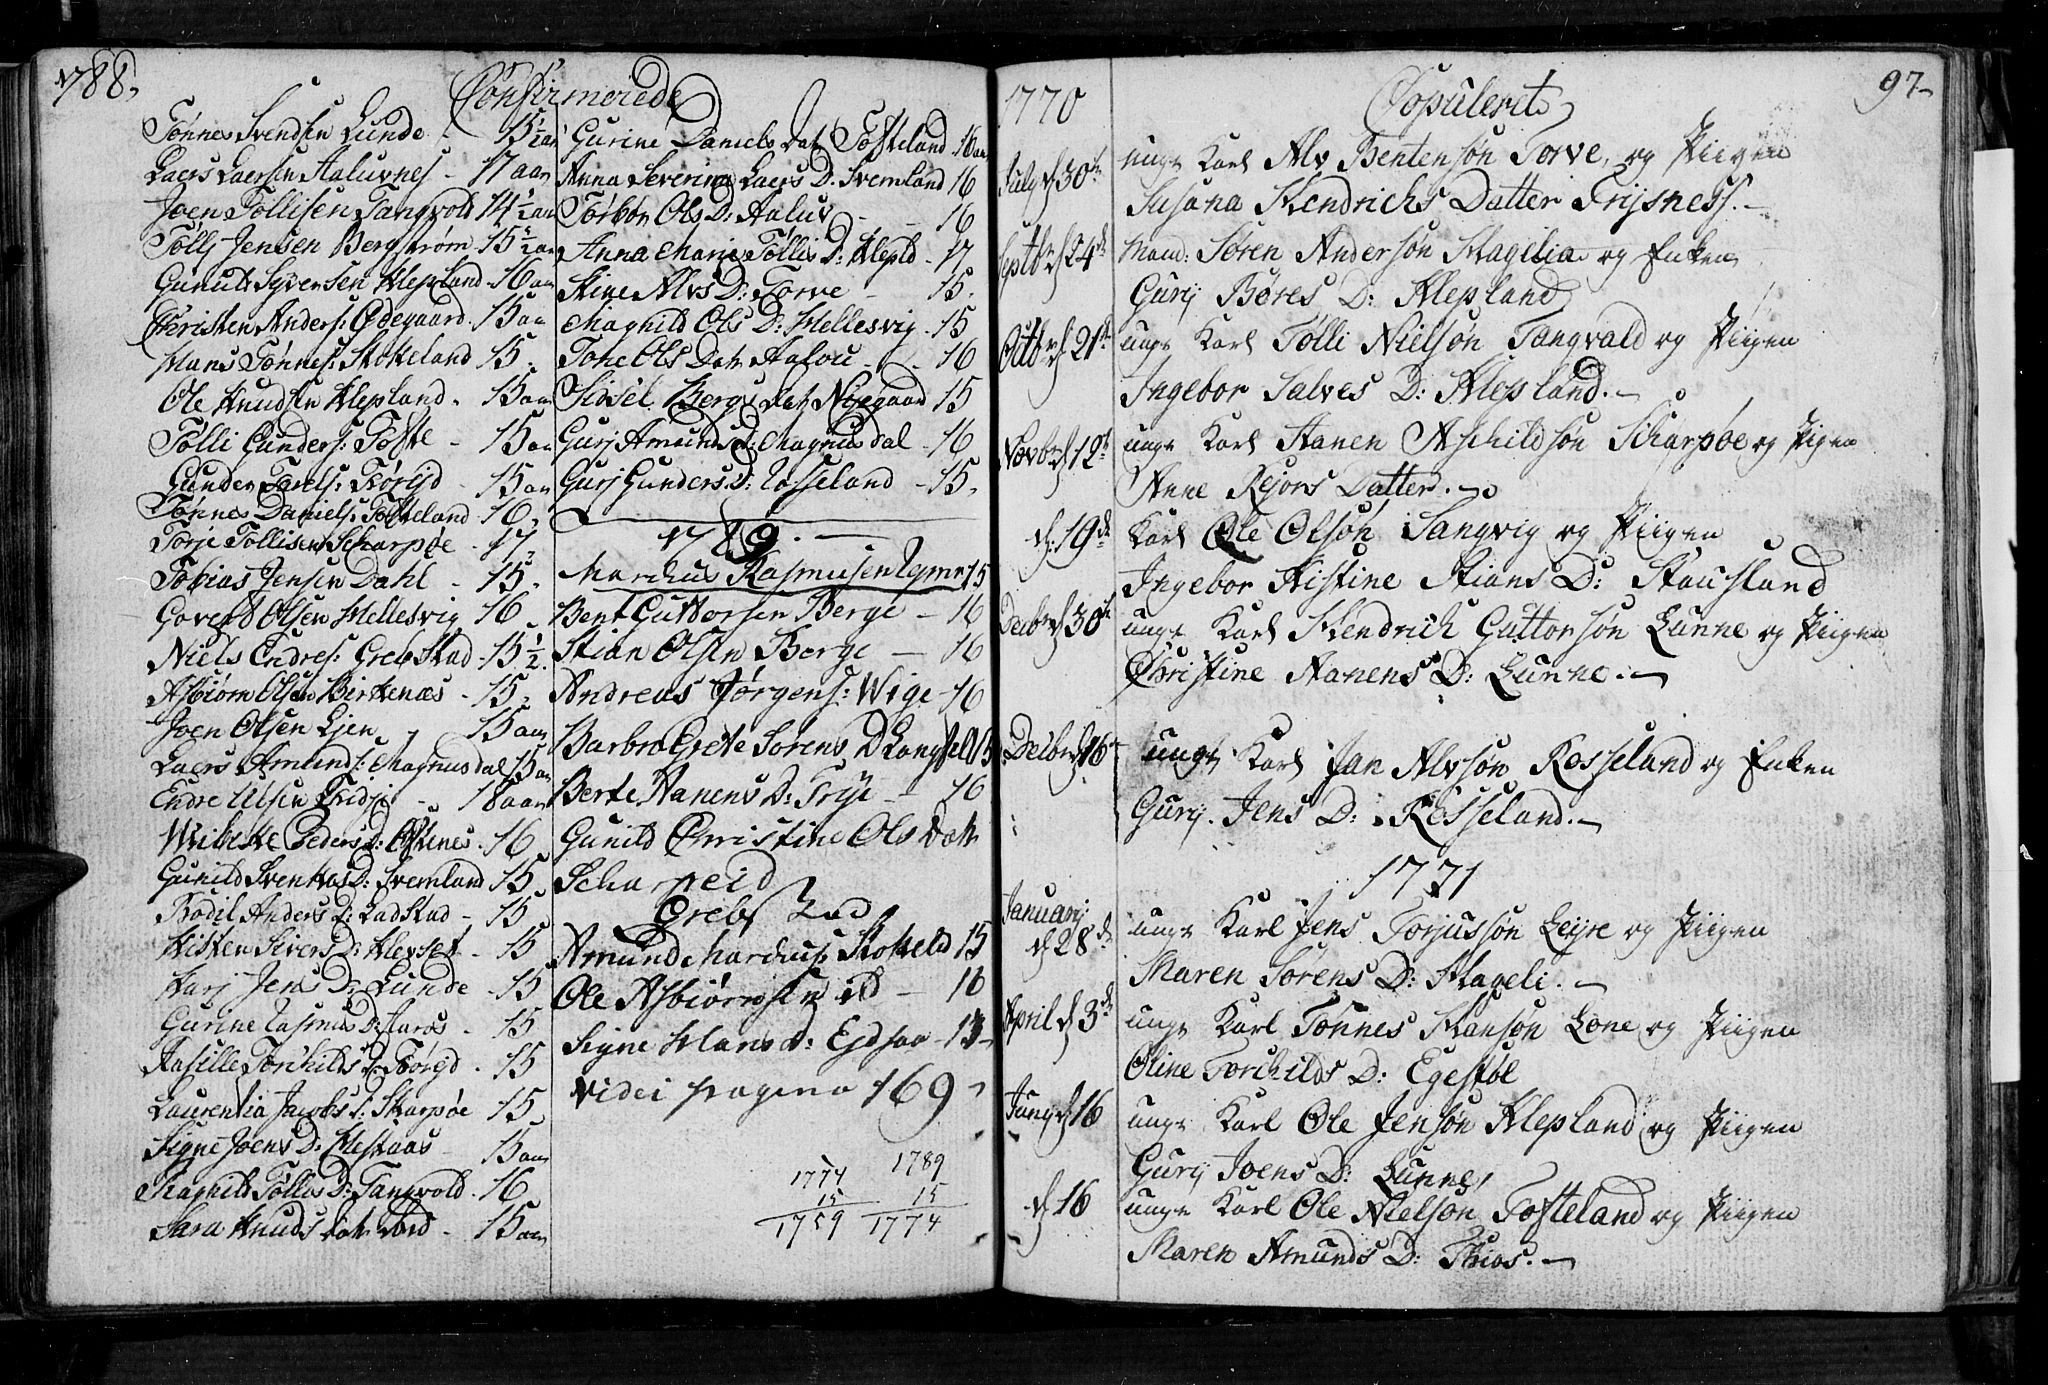 1788,
Confirmerede
Tønnes Svendsen Lunde - 15 1/2 aar
Laers Laersen Aaluvnes - 17 aar
Joen Tøllisen Tangvold 14 1/2 aar
Tollj Jensen Bergstrøm - 15 1/2 aar
Gunuld Syversen Klepland - 16 aar
Christen Anders: Ødegaard - 15 aar
Hans Tønnes: Stokeland 15
Ole Knudsen Klepland - 15 aar
Tølli Gunders: Tofte - 15 aar
Gunder Tarels: Tørrijd - 15 aar
Tønnes Daniels: Tofteland - 16
Torje Tollisen Scharpøe - 17
Tobias Jensen Dahl - 15
Govert Olsen Hellesvig 16
Niels Endres: Grebstad - 15 1/2
Asbiørn Olsen Birkenæs - 15
Joen Olsen Lien - 15 aar
Laers Amunds: Magnusdal 15 aar
Endre Ulsen Eridsj - 18 aar
Wibeke Peders D: Østenes - 16
Gunild Svenkes D: Svemland 15
Bodil Anders D: Ladstad - 15
Kisten Sivers D: Klevset - 15
Karj Jens D: Lunde - 15
Gurine Rasmus D: Aaros - 15
Aasille Torkilds D: Tørrijd - 15
Laurentia Jacobs D: Skarpøe - 15
Signe Joens D: Hestaas - 15 aar
Magnild Tøllos D: Tangvold - 16
Sara Knuds Dat - 15 aar
Gurine Daniels Dat Tofteland 16 aar
Anna Severina Laers D. Svemland 16
Torbor Ols D: Aaluv - 16
Anna Marie Tøllis D: Klepld - 17
Stine Alvs D: Torve - 15
Magnild Ols D: Hellesvig - 15
Tone Ols Datr Aaløu 16
Sidsel Bergs Dat Nøegaard 15
Gurj Amunds D: Magnusdal - 16
Gurj Gunders D: Rosseland - 15
1789. -
Marchus Rasmusen Rymr 15
Bent Guttorsen Berge - 16
Stian Olsen Berge - 16
Andreas Jørgens: Wige - 16
Barbro Grete Sorens D Langfelt 15
Berte Aanens D: Trije - 16
Gunild Christine Ols Datr
Scharpeid
Grebstad
Amund Marchus: Stokeld 15
Ole Asbiørnsen ibd - 16
Signe Hans D: Ejdsaa - 15
Videi pagina 169
1774 1789
15 15
1759 1774
1770
Copuleret
97
July d 30te unge Karl Alv Bentensøn Torve, og Piigen
Susana Hendrichs Datter Trijsness. -
Septbr d 24de Mand: Søren Andersøn Hagelia og Enken
Gurij Børes D: Klepland
Octbr d 21de unge Karl Tølli Nielsøn Tangvald og Piigen
Ingebor Salves D: Klepland. -
Novbr d 12te unge Karl Aanen Aschildsøn Scharpøe og Pigen
Anne Rejors Datter. -
d: 19de Karl Ole Olsøn Langvig og Piigen
Ingebor Kistine Stians D: Stausland
Decbr d 30te unge Karl Hendrich Guttorsøn Lunne og Piigen
Christine Aanens D: Lunne. -
Decbr d 15 unge Karl Jan Alvsøn Rosseland og Enken
Gurij Jens D: Rosseland. -
1771
Januarij
d 28de unge Karl Jens Torjussøn Leijre og Piigen
Maren Sørens D: Hageli. -
April d 3de unge Karl Tønnes Hansøn Lone og Piigen
Oline Torchilds D: Egestøl
Junij d: 16 unge Karl Ole Jensøn Klepland og Piigen
Gurij Joens D: Lunne,
d 16 unge Karl Ole Nielsøn Tofteland og Piigen
Maren Amunds D: Thros. -